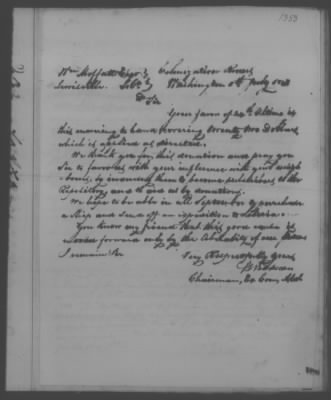 1353
Wm Moffatt Esqr Colonization Rooms
Washington 5th July
Dr Sir
Your favor of 24th Ultimo is
this morning to hand covering twenty two Dollars
which is applied as directed.
We thank you for this donation and pray you
Sir to favor us with your influence with your neigh
bours, to them to become subscribers to the
Repository, and to aid us by donations.
We hope to be able in all September to purchase
a Ship and send off an expedition to Liberia.
You know my friend that this good cause is
forward only by the of our
I remain Sir Very Respectfully yours
Chairman, Ex Com,